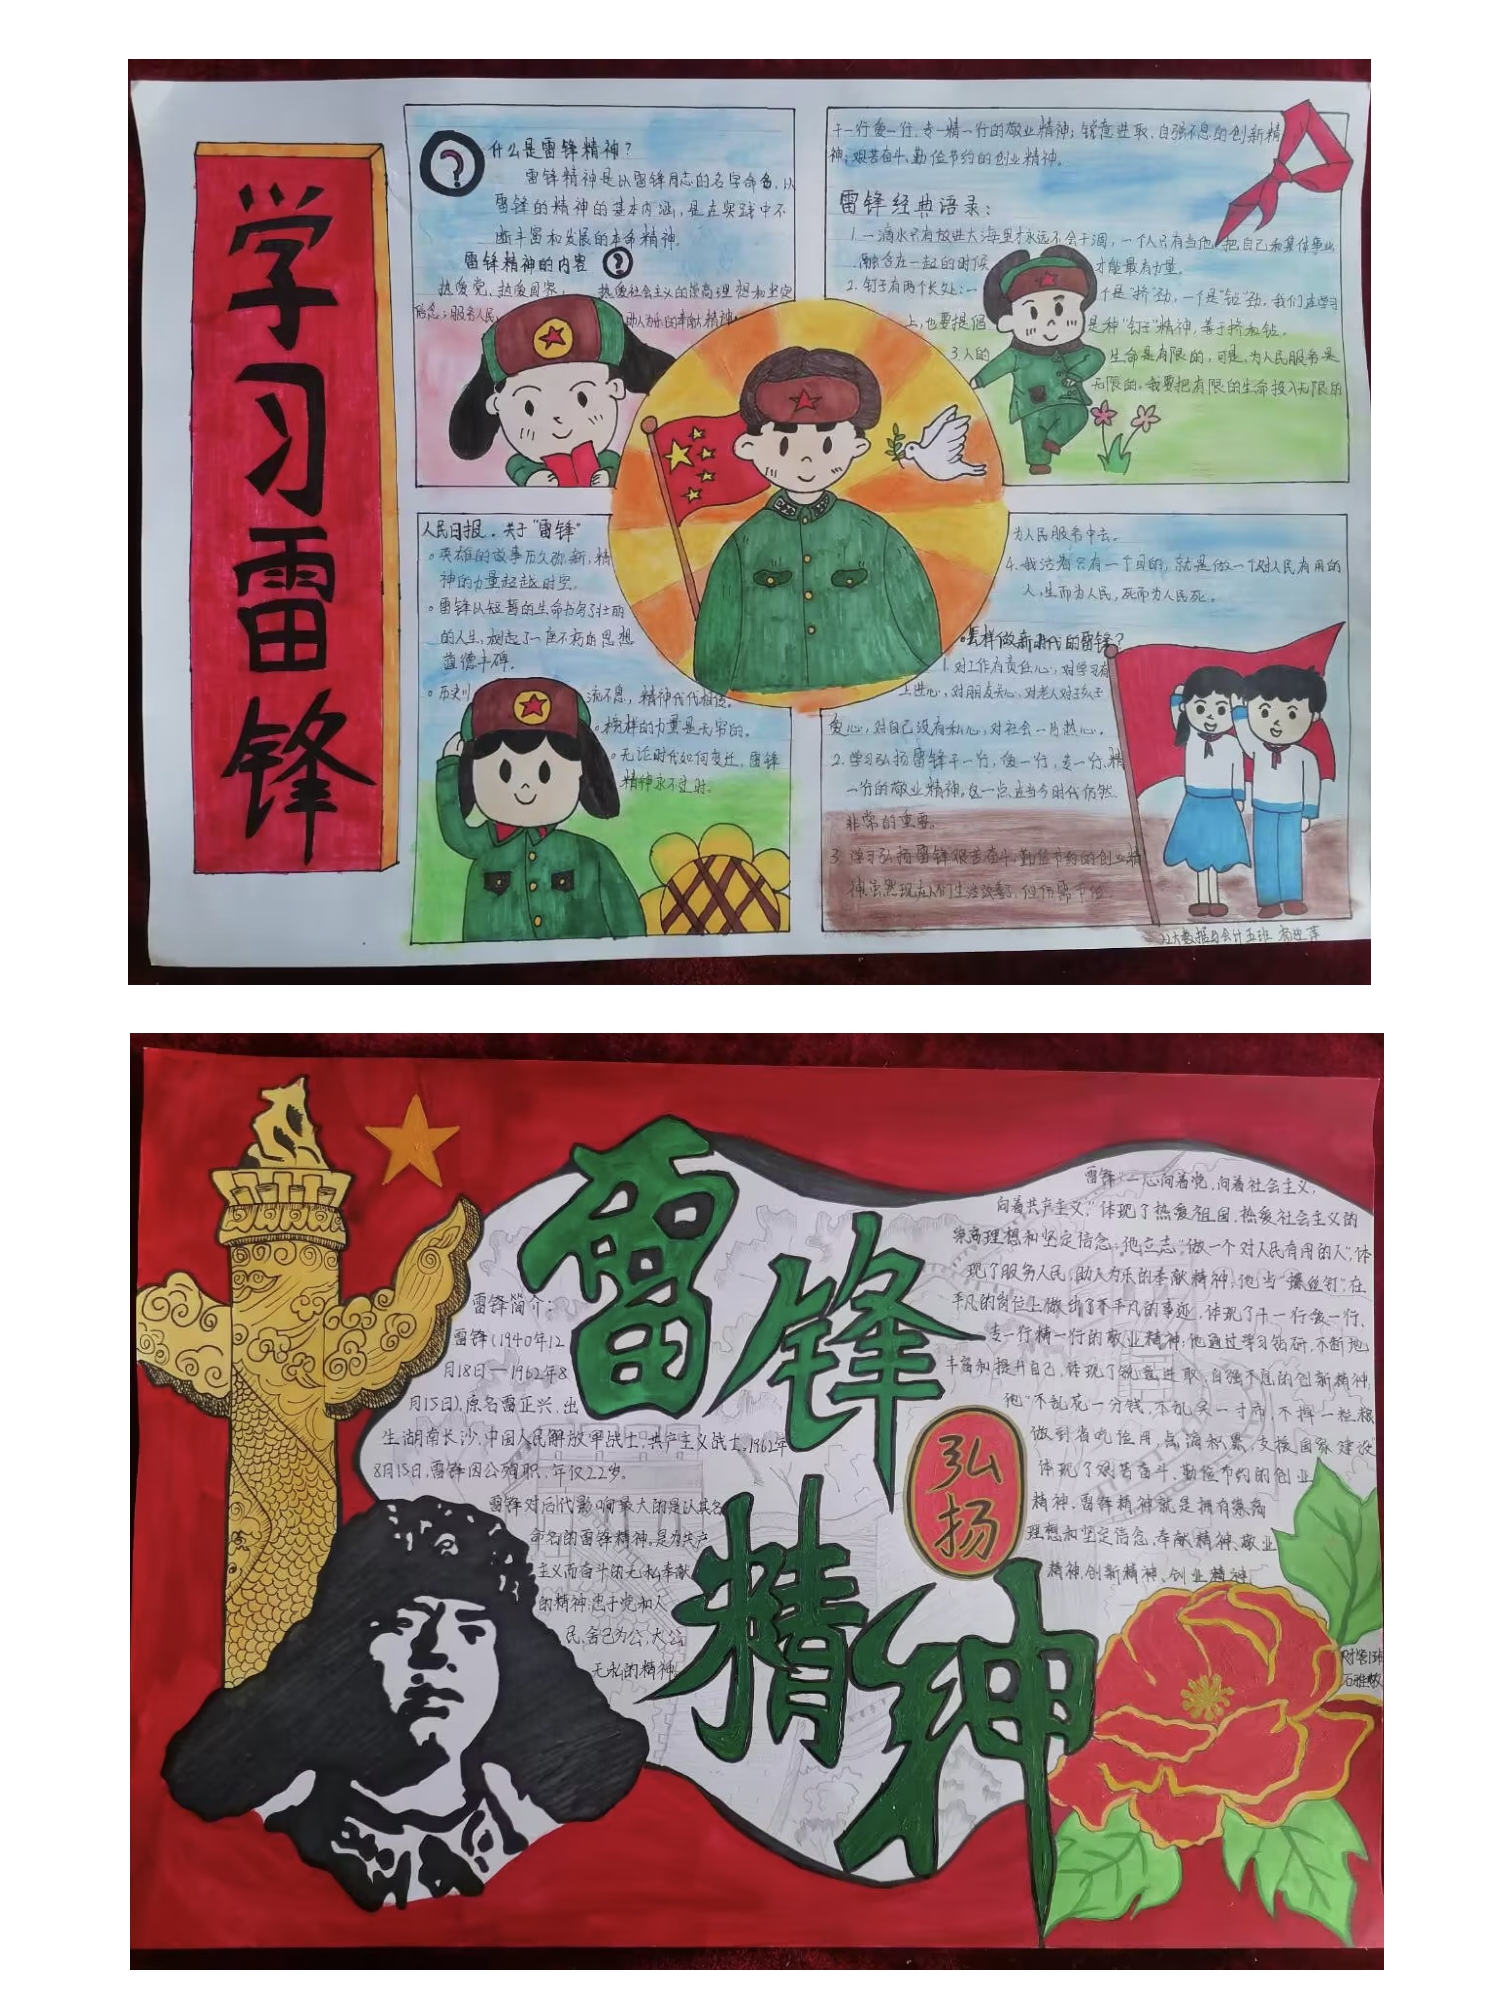 学习雷锋
什么是雷锋精神？
雷锋精神是以雷锋同志的名字命名，以
雷锋的精神的基本内涵，是在实践中不
断丰富和发展的革命精神。
雷锋精神的内容
热爱党、热爱国家， 热爱社会主义的崇高理想和坚定
信念；服务人民， 助人为乐的奉献精神；
干一行爱一行、专一精一行的敬业精神；锐意进取、自强不息的创新精
神；艰苦奋斗、勤俭节约的创业精神。
雷锋经典语录：
1. 一滴水只有放进大海里才永远不会干涸，一个人只有当他 把自己和集体事业
融合在一起的时候 才能最有力量。
2. 钉子有两个长处：一 个是“挤”劲，一个是“钻”劲，我们在学习
上，也要提倡 是种“钉子”精神，善于挤和钻。
3. 人的 生命是有限的，可是，为人民服务是
无限的，我要把有限的生命投入无限的
为人民服务中去。
4. 我活着只有一个目的，就是做一个对人民有用的
人，生而为人民，死而为人民死。
人民日报，关于“雷锋”
英雄的故事历久弥新，精
神的力量超越时空。
雷锋以短暂的生命书写了壮丽
的人生，树起了一座不朽的思想
道德丰碑。
历史川 流不息，精神代代相传。
榜样的力量是无穷的。
无论时代如何变迁，雷锋
精神永不过时。
怎样做新时代的雷锋？
1. 对工作有责任心，对学习有
上进心，对朋友关心，对老人对孩子
爱心，对自己没有私心，对社会一片热心。
2. 学习弘扬雷锋干一行，爱一行，专一行，精
一行的敬业精神，这一点在当今时代仍然
非常的重要。
3. 学习弘扬雷锋艰苦奋斗，勤俭节约的创业精
神，虽然现在人们生活改善了，但仍需节俭
22大数据与会计五班
雷锋精神
弘扬
雷锋简介：
雷锋（1940年12
月18日—1962年8
月15日），原名雷正兴，出
生湖南长沙，中国人民解放军战士，共产主义战士。1962年
8月15日，雷锋因公殉职，年仅22岁。
雷锋对后代影响最大的是以其名
命名的雷锋精神。是为共产
主义而奋斗的无私奉献
的精神；忠于党和人
民、舍己为公、大公
无私的精神
雷锋“一心向着党，向着社会主义，
向着共产主义，”体现了热爱祖国、热爱社会主义的
崇高理想和坚定信念；他立志“做一个对人民有用的人”，体
现了服务人民、助人为乐的奉献精神；他当“螺丝钉”，在
平凡的岗位上做出了不平凡的事迹，体现了干一行爱一行、
专一行精一行的敬业精神；他通过学习钻研，不断地
丰富和提升自己，体现了锐意进取、自强不息的创新精神，
他“不乱花一分钱，不乱买一寸布，不掉一粒粮
做到省吃俭用，点滴积累，支援国家建设”
体现了艰苦奋斗、勤俭节约的创业
精神，雷锋精神就是拥有崇高
理想和坚定信念、奉献精神、敬业
精神、创新精神、创业精神